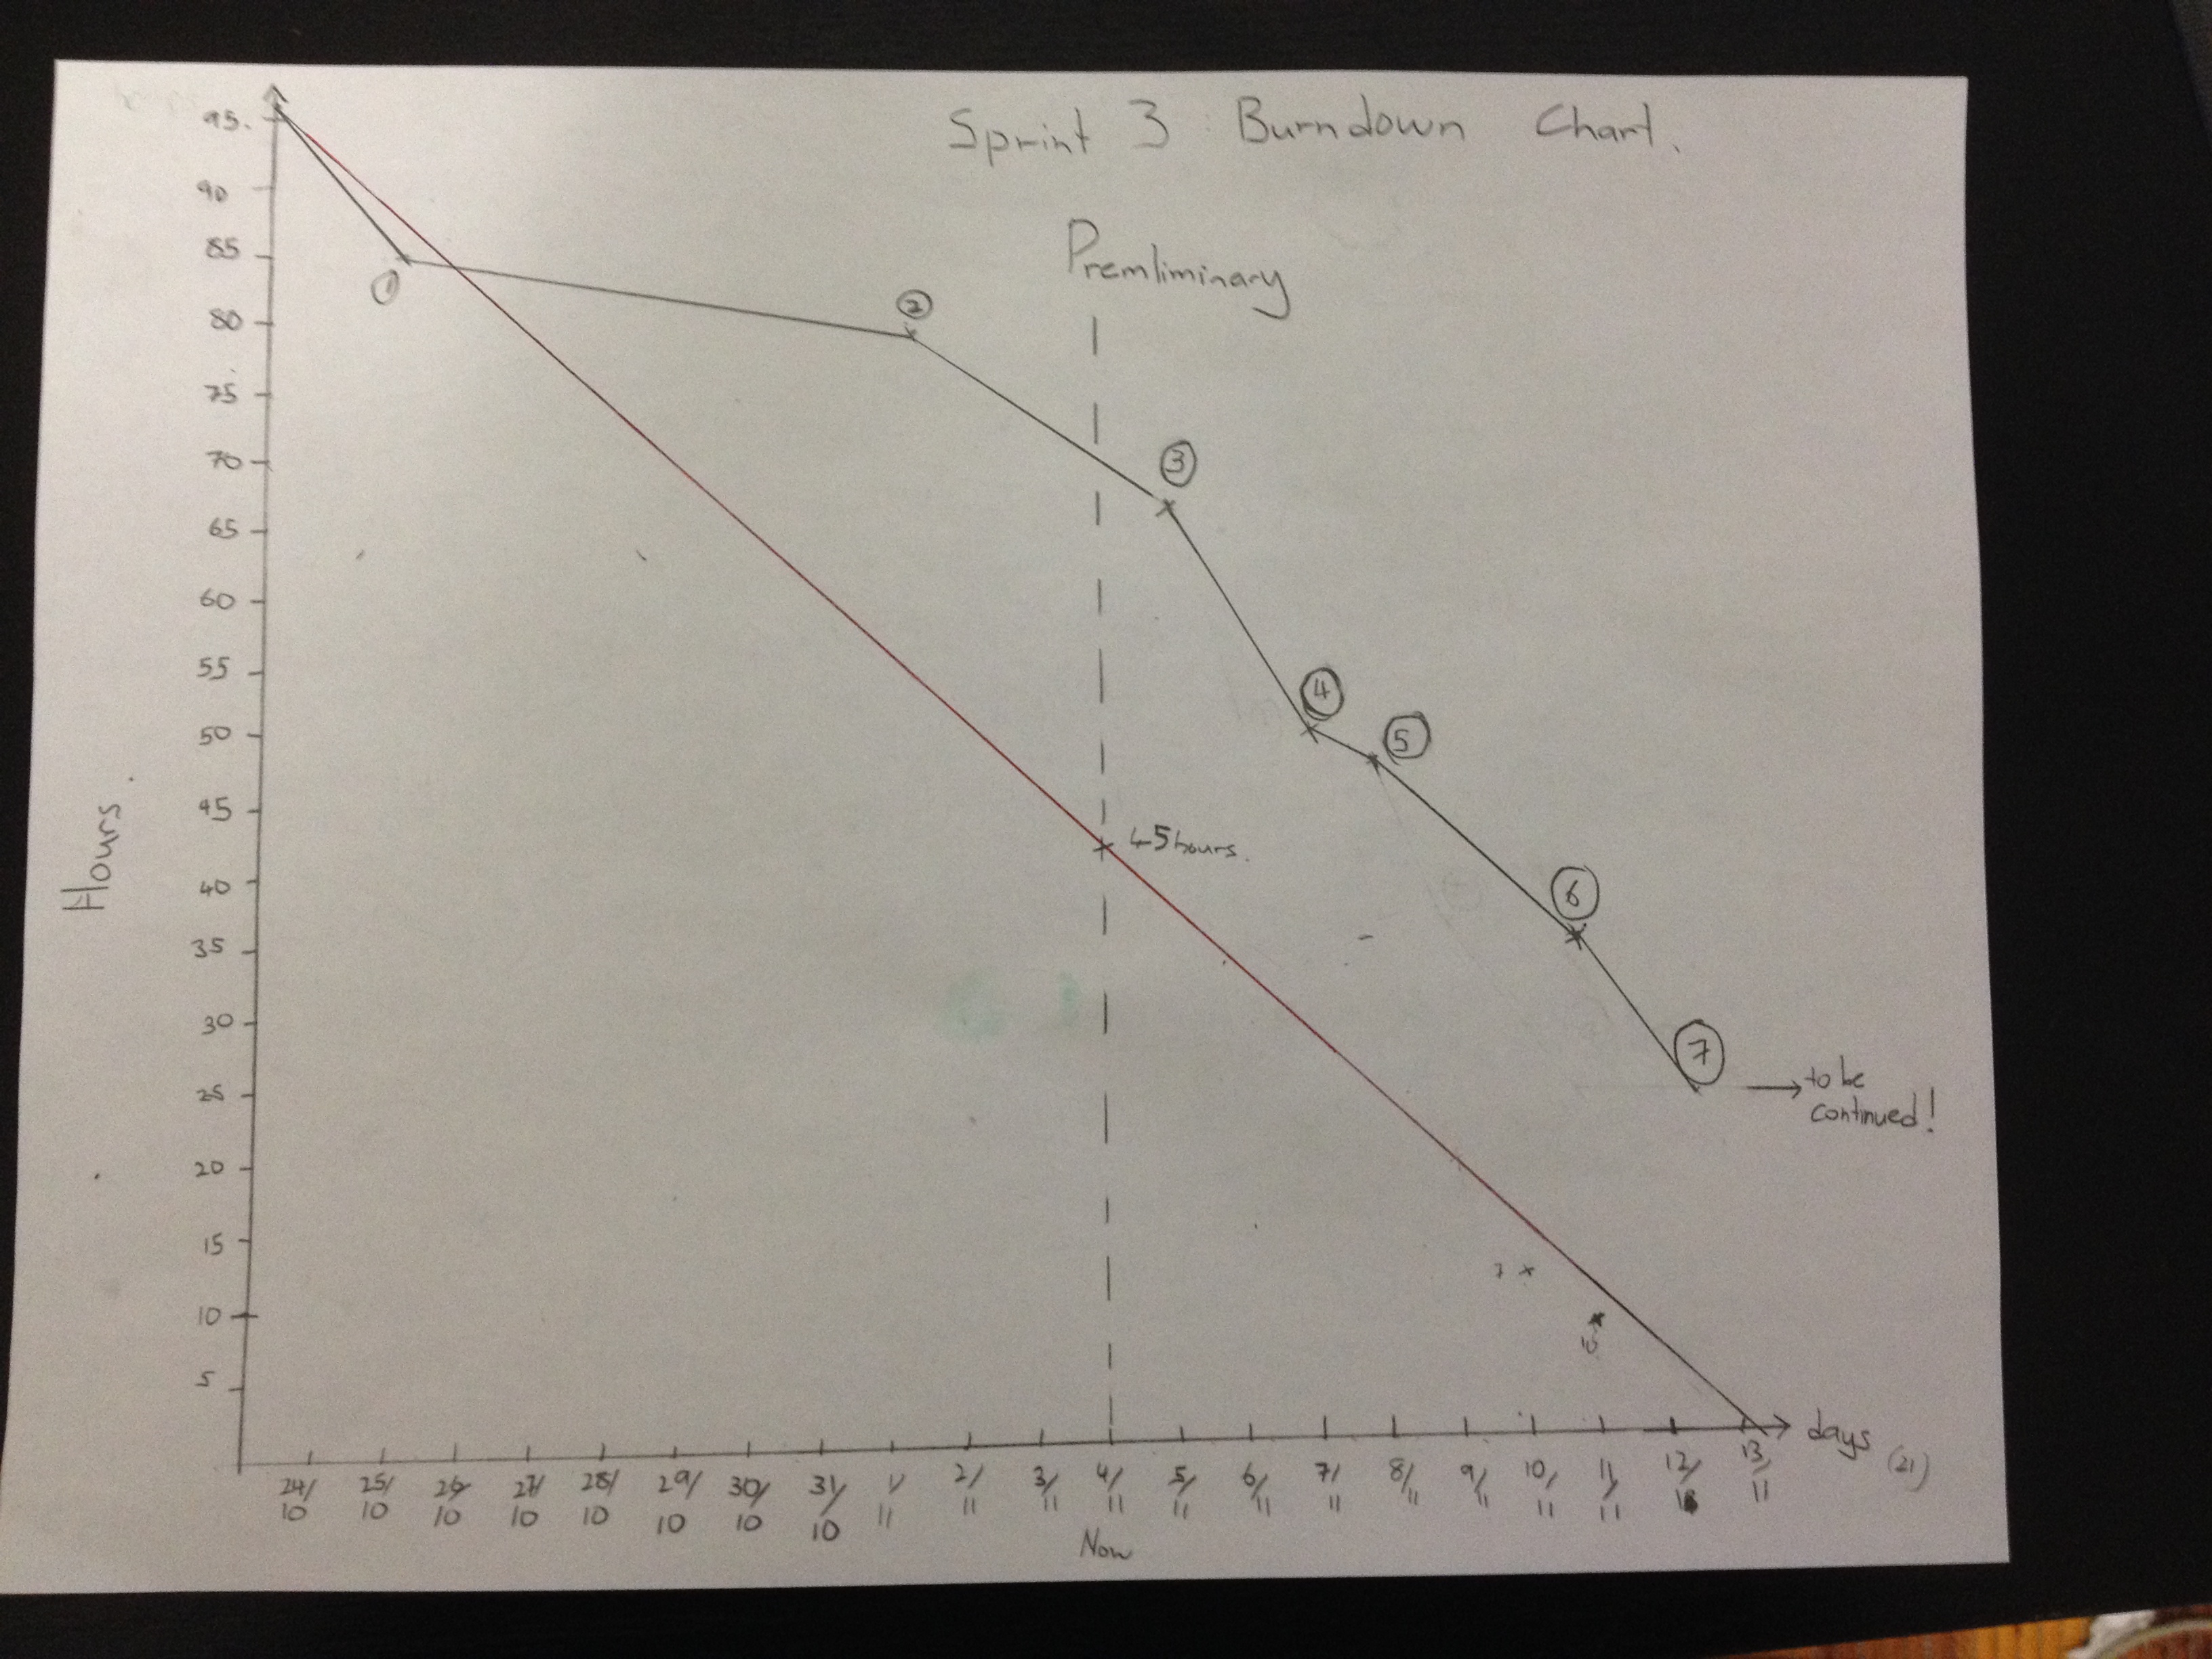 Sprint 3 Burndown Chart.
Premliminary
95.
90
85
80
75
70
65
60
55
50
45
40
35
30
25
20
15
10
5
Hours.
1
2
3
4
5
45hours.
6
7
to be
continued!
days (21)
24/10
25/10
26/10
27/10
28/10
29/10
30/10
31/10
1/11
2/11
3/11
4/11
5/11
6/11
7/11
8/11
9/11
10/11
11/11
12/
13/11
Now